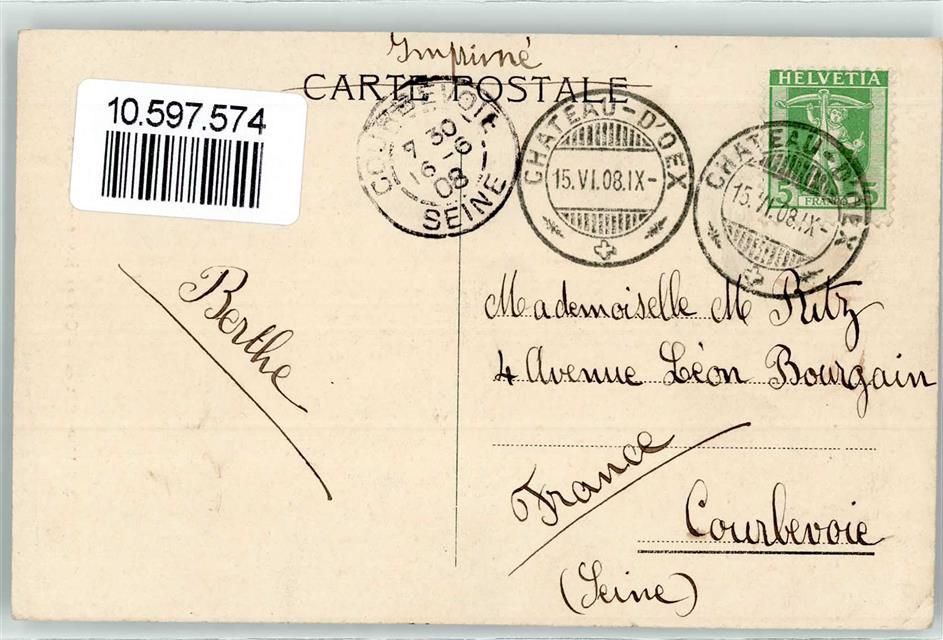 Imprimé
CARTE POSTALE
10.597.574
COURBEVOIE
7 30
16-6
08
SEINE
CHATEAU-D'OEX
15.VI.08.IX-
CHATEAU-D'OEX
15.VI.08.IX-
HELVETIA
5 FRANCO 5
Berthe
Mademoiselle M Ritz
4 Avenue Léon Bourgain
France
Courbevoie
(Seine)